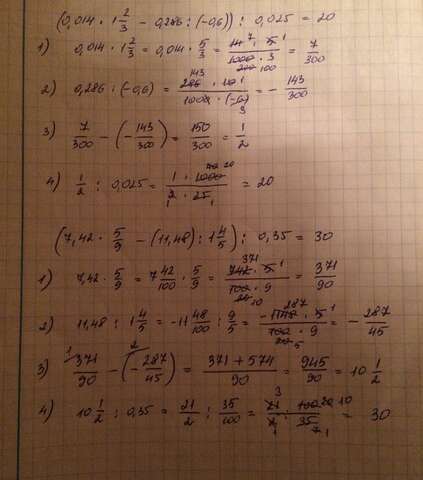 (0,014 · 1 2/3 − 0,286 : (−0,6)) : 0,025 = 20
1) 0,014 · 1 2/3 = 0,014 · 5/3 = (14 7 · 5 1)/(1000 · 3 200 100) = 7/300
2) 0,286 : (−0,6) = (286 143 · 10 1)/(1000 · (−6) 3) = − 143/300
3) 7/300 − (− 143/300) = 150/300 = 1/2
4) 1/2 : 0,025 = (1 · 1000 20)/(2 1 · 25 1) = 20
(7,42 · 5/9 − (11,48) : 1 4/5) : 0,35 = 30
1) 7,42 · 5/9 = 7 42/100 · 5/9 = (742 371 · 5 1)/(100 20 10 · 9) = 371/90
2) 11,48 : 1 4/5 = −11 48/100 : 9/5 = (−1148 287 · 5 1)/(100 20 5 · 9) = − 287/45
3) 1 371/90 − (− 2 287/45) = (371 + 574)/90 = 945/90 = 10 1/2
4) 10 1/2 : 0,35 = 21/2 : 35/100 = (21 3 · 100 20 10)/(2 1 · 35 7 1) = 30